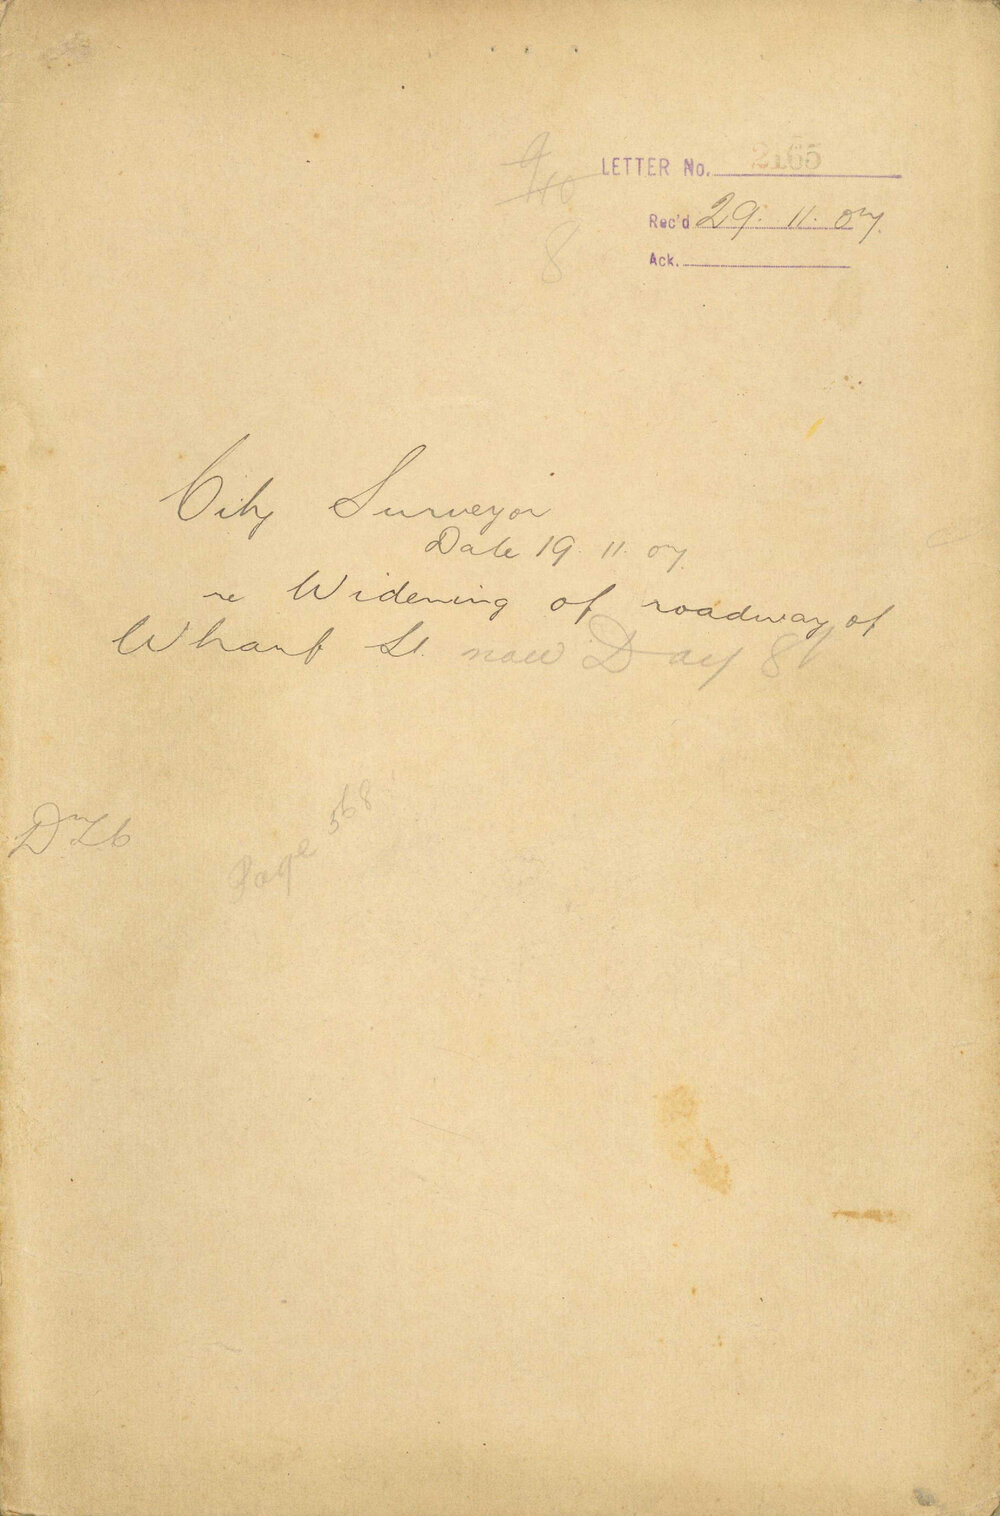 LETTER No. 2165
Rec'd 29. 11. 07.
Ack.
9/10
8
City Surveyor
Date 19. 11. 07.
re Widening of roadway of
Wharf St. now Day St
Page 568